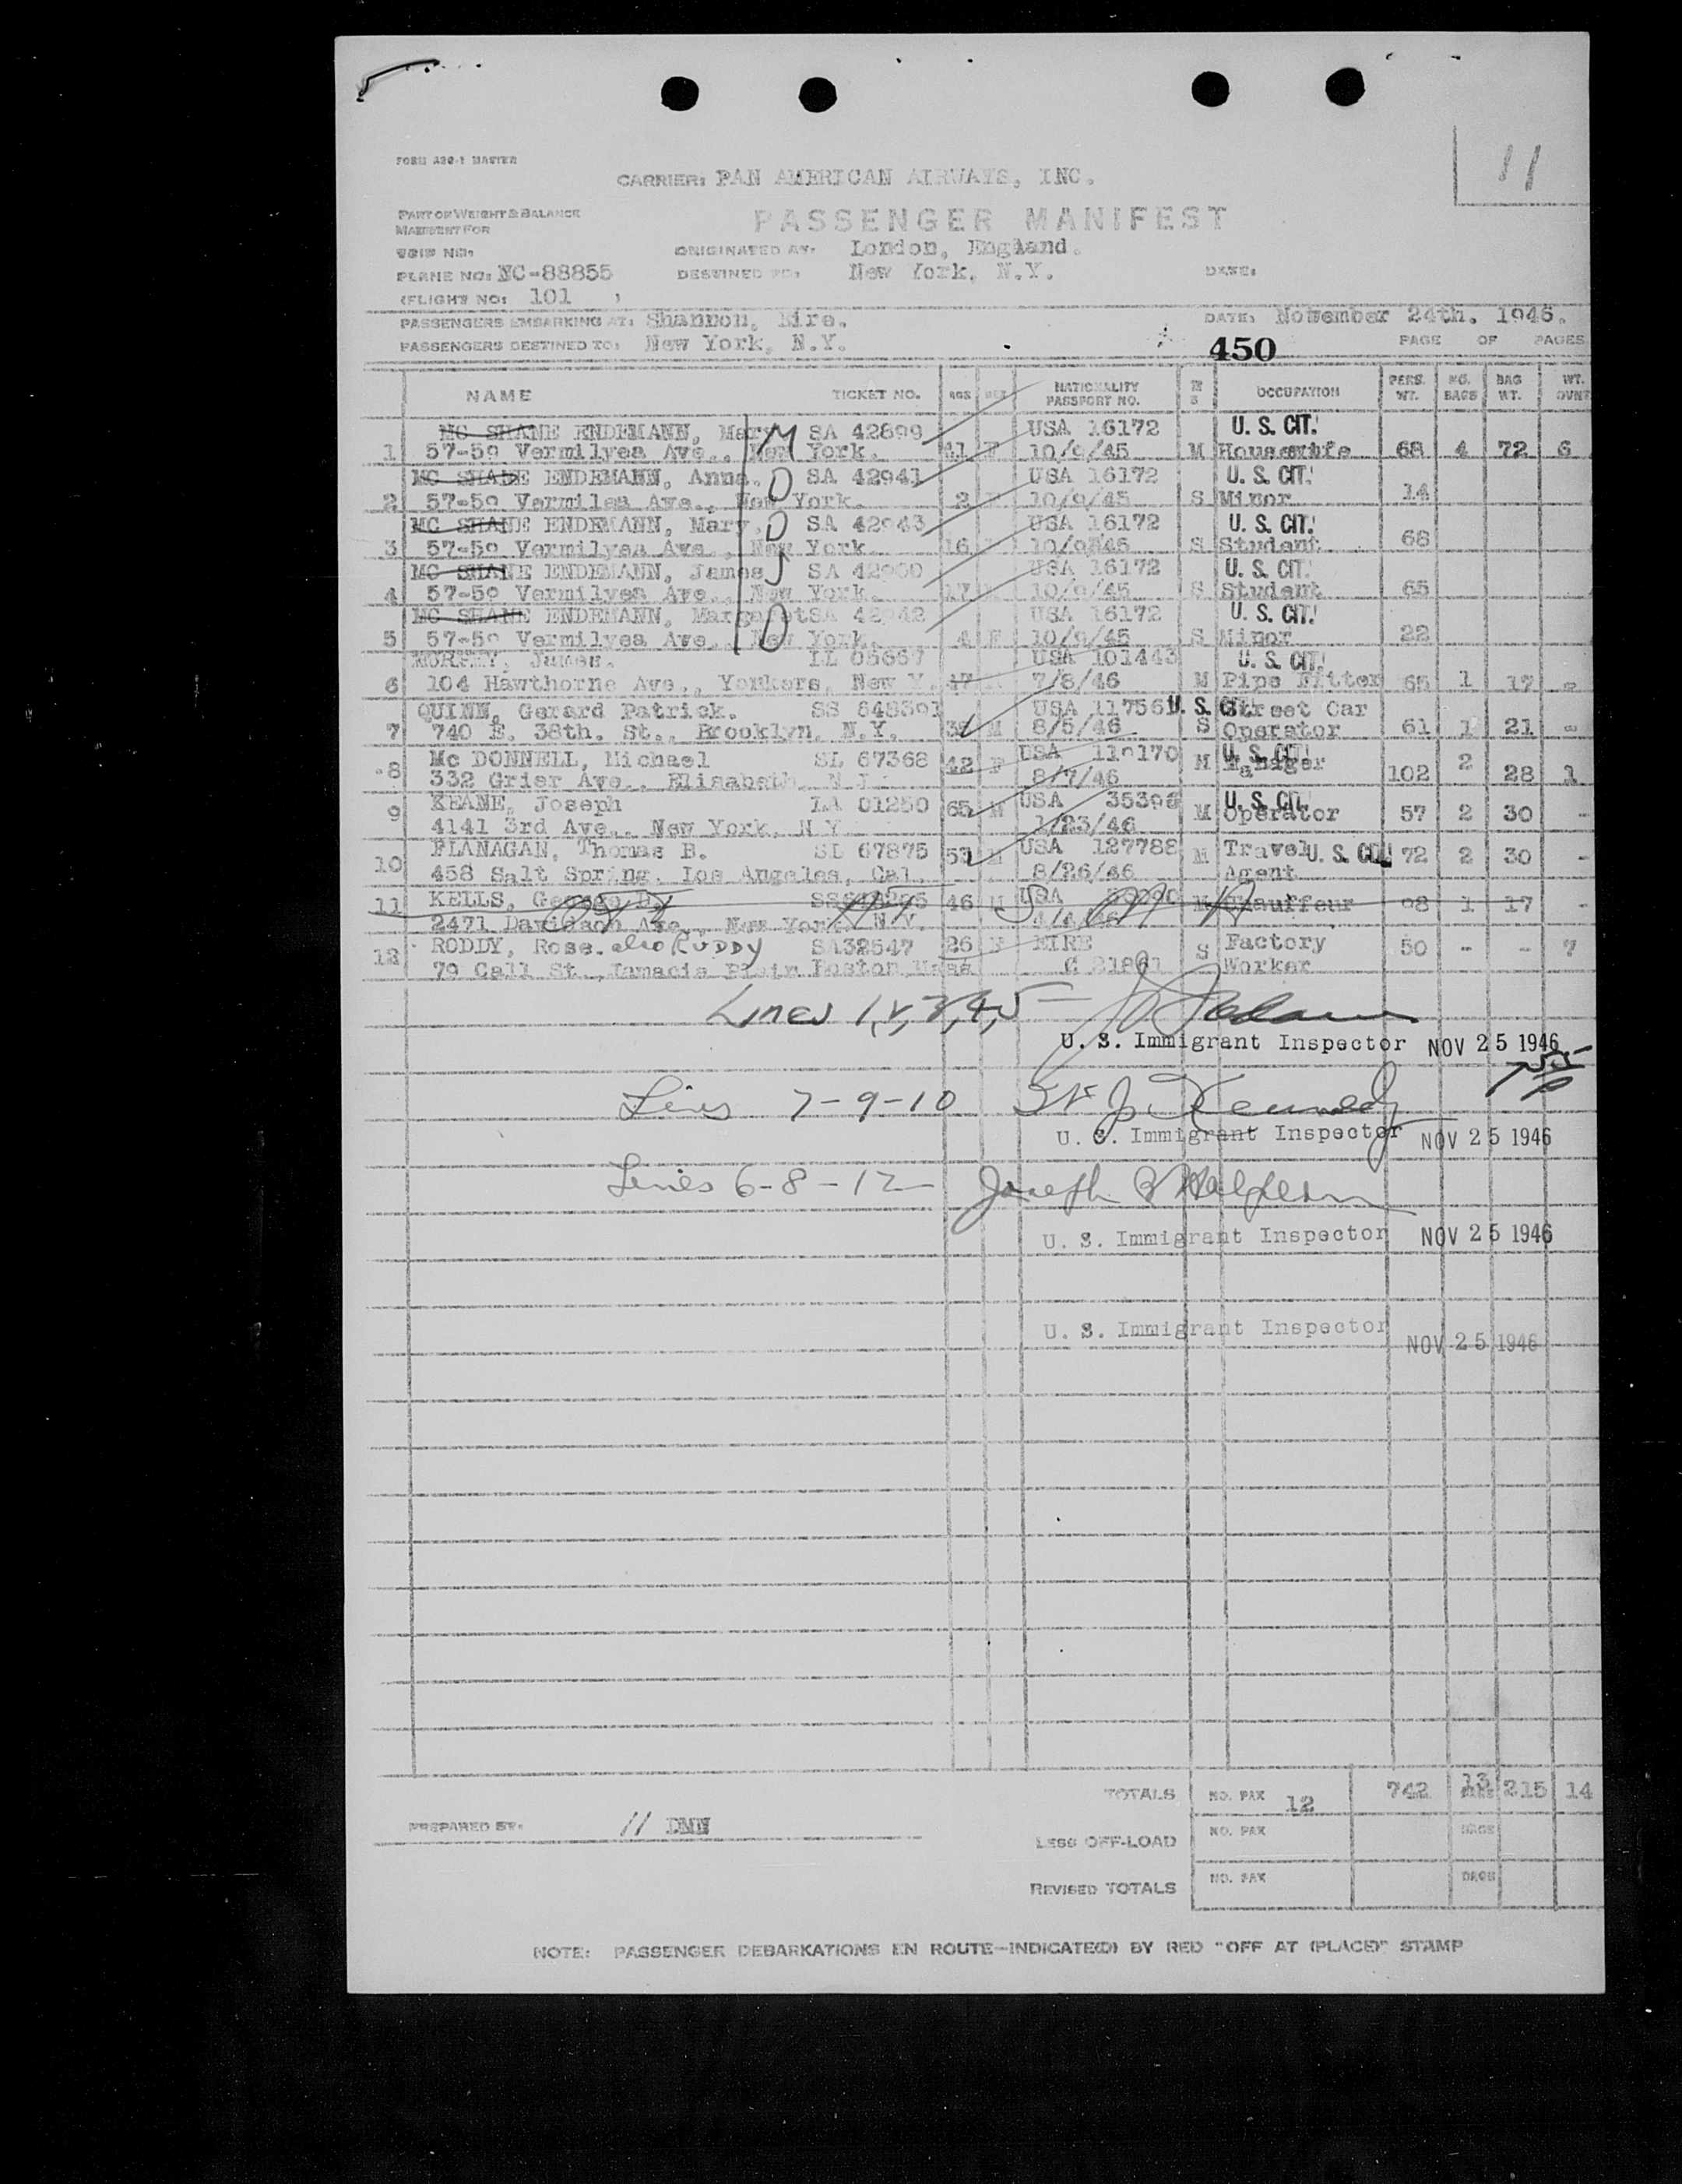 11
FORM A30-1 MASTER
CARRIER: PAN AMERICAN AIRWAYS, INC.
PART OF WEIGHT & BALANCE
MANIFEST FOR
PASSENGER MANIFEST
TRIP NO:
ORIGINATED AT: London, England.
PLANE NO: NC-88855
DESTINED TO: New York, N.Y.
DATE:
(FLIGHT NO: 101 )
PASSENGERS EMBARKING AT: Shannon, Eire.
DATE: November 24th. 1946.
PASSENGERS DESTINED TO: New York, N.Y.
450
PAGE OF PAGES
NAME TICKET NO. AGE SEX NATIONALITY PASSPORT NO. M S OCCUPATION PERS. WT. NO. BAGS BAG WT. WT. OVNT
MC SHANE ENDEMANN, Mary M SA 42899 USA 16172 U. S. CIT.
1 57-59 Vermilyea Ave., New York. 41 F 10/9/45 M Housewife 68 4 72 6
MC SHANE ENDEMANN, Anna. D SA 42941 USA 16172 U. S. CIT.
2 57-59 Vermilea Ave., New York. 2 10/9/45 S Minor 14
MC SHANE ENDEMANN, Mary. D SA 42943 USA 16172 U. S. CIT.
3 57-59 Vermilyea Ave., New York 16 10/9/45 S Student 68
MC SHANE ENDEMANN, James S SA USA 16172 U. S. CIT.
4 57-59 Vermilyea Ave., New York. 17 10/9/45 S Student 65
MC SHANE ENDEMANN, Margaret SA 42942 USA 16172 U. S. CIT.
5 57-59 Vermilyea Ave., New York. D 4 F 10/9/45 S Minor 22
MURPHY, James. LL 05667 USA 101443 U. S. CIT.
6 104 Hawthorne Ave., Yonkers, New Y. 47 7/8/46 M Pipe Fitter 65 1 17 -
QUINN, Gerard Patrick. SS 648391 USA 117561 U. S. CIT. Street Car
7 740 E. 38th. St., Brooklyn, N.Y. M 8/5/46 S Operator 61 1 21 -
Mc DONNELL, Michael SL 67368 USA 119170 U. S. CIT.
8 332 Grier Ave., Elisabeth, N J. 42 F 8/7/46 M Manager 102 2 28 1
KEANE, Joseph LA 01250 USA 35398 U. S. CIT.
9 4141 3rd Ave., New York, N Y 65 M 1/23/46 M Operator 57 2 30 -
FLANAGAN, Thomas B. SL 67875 USA 127788 Travel U. S. CIT.
10 458 Salt Spring. Los Angeles, Cal. 53 M 8/26/46 M Agent 72 2 30 -
KELLS, George D. USA
11 2471 Davidson Ave., New York, N.Y. 46 M 4/4/46 M Chauffeur 98 1 17 -
RODDY, Rose. also RUDDY SA32547 EIRE Factory
12 79 Call St., Jamacia Plain Boston, Mass 26 F C 21861 S Worker 50 - - 7
Lines 1,2,3,4,5 —
U. S. Immigrant Inspector NOV 25 1946
Lines 7-9-10 Kennedy
U. S. Immigrant Inspector NOV 25 1946
Lines 6-8-12 Joseph
U. S. Immigrant Inspector NOV 25 1946
U. S. Immigrant Inspector NOV 25 1946
TOTALS NO. PAX 12 742 13 BAGS 215 14
PREPARED BY: // DMN
LESS OFF-LOAD NO. PAX BAGS
REVISED TOTALS NO. PAX BAGS
NOTE: PASSENGER DEBARKATIONS EN ROUTE—INDICATE(D) BY RED "OFF AT (PLACE)" STAMP